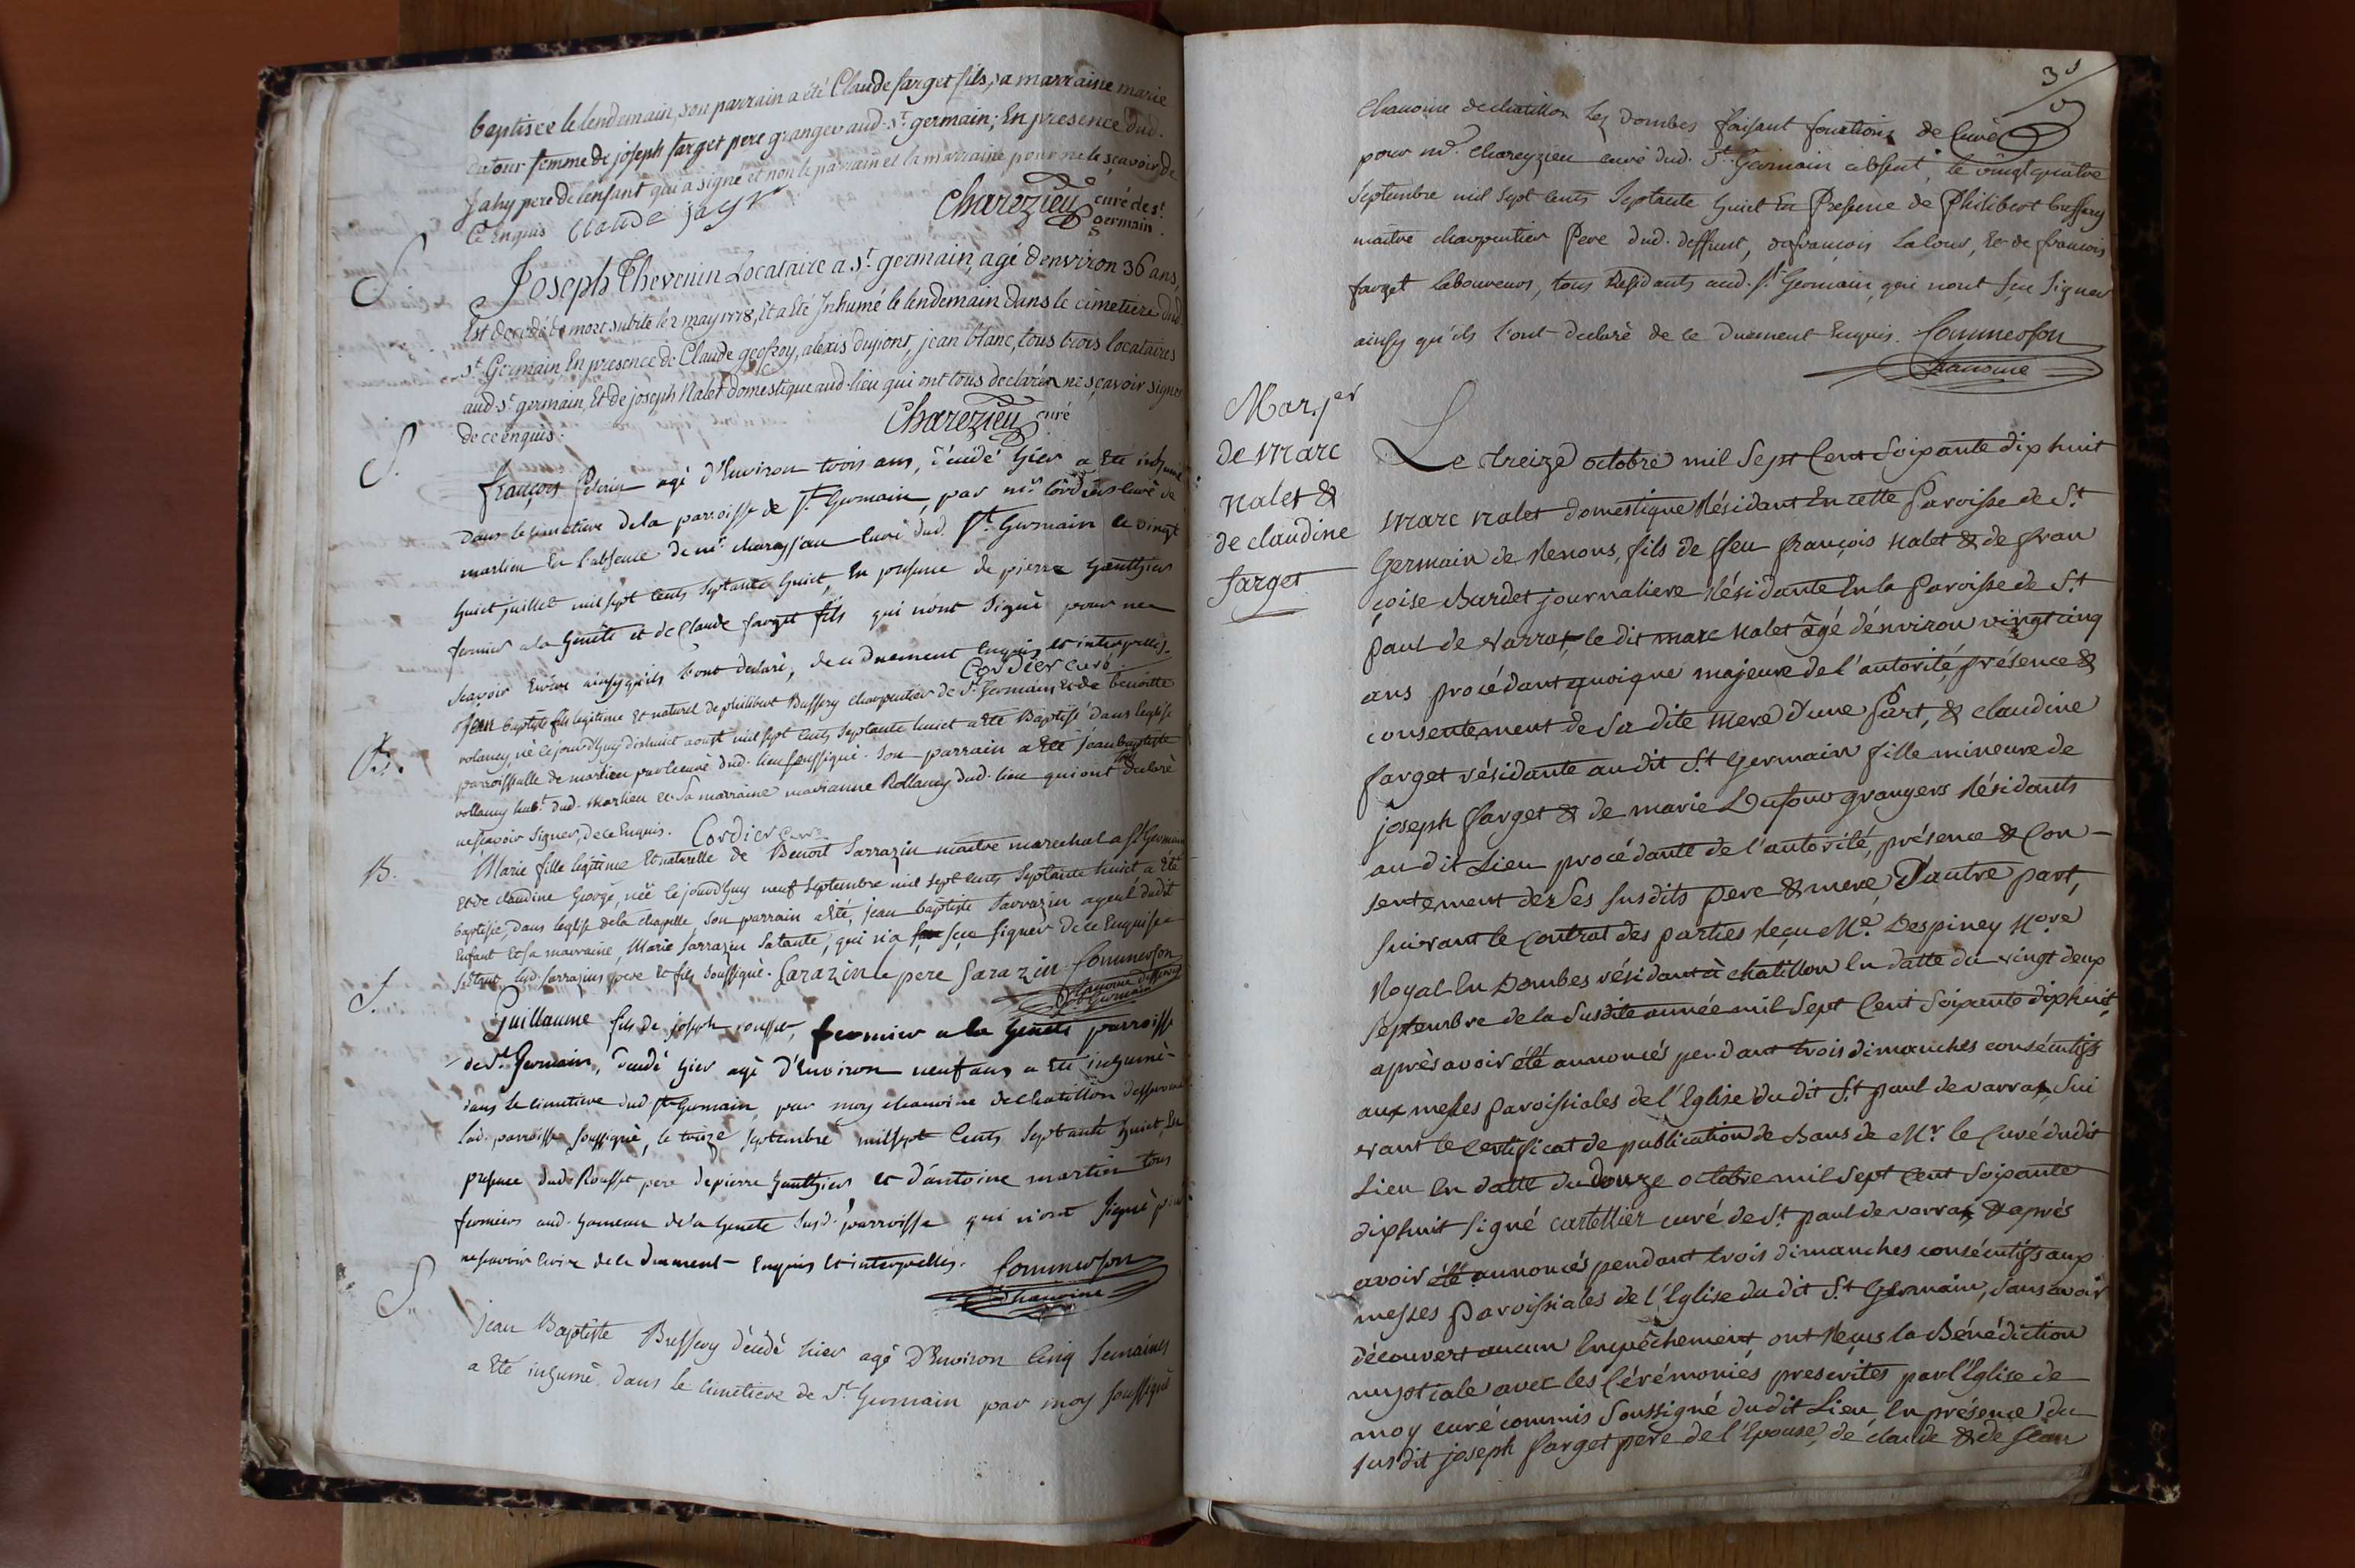 baptisée le lendemain, son parrain a été Claude farget fils, sa marraine marie
dufour femme de joseph farget pere granger aud. St. germain; En présence dud.
jahy pere de lenfant qui a signé et non le parrain et la marraine pour ne le sçavoir de
ce Enquis Claude jayr
Charezieu curé de st.
germain.
S
Joseph Thevenin Locataire a St. germain, agé denviron 36 ans,
Est decedé de mort subite le 2 may 1778, Et a Eté Inhumé le lendemain dans le cimetiere dud.
St. Germain En presence de Claude geofroy, alexis dujont, jean blanc, tous trois locataires
aud. St. germain, Et de joseph Nalet domestique aud. lieu qui ont tous declarés ne sçavoir signer
de ce enquis.
Charezieu curé
S.
françois agé d'Environ trois ans, décédé hier a Eté inhumé
Dans le cimetiere de la parroisse de St. Germain, par mr. Cordier Curé de
marlieu En l'absence de mr. Curé dud. St. Germain le vingt
huict juillet mil sept cents septante huict, En presence de pierre Gauthier
fermier a la Genête et de Claude farget fils qui n'ont signé pour ne
scavoir Ecrire ainsy qu'ils l'ont declaré, de ce Duement Enquis et interpellés.
Cordier curé.
B.
Jean baptiste fils legitime Et naturel de philibert Buffery charpentier de St. Germain et de benoitte
volancy, né ce jourd'huy dixhuict aoust mil sept cents septante huict a Eté Baptisé dans l'eglise
parroissialle de marlieu par le curé dud. lieu soussigné. Son parrain a Eté jean baptiste
vollancy habt. dud. Marlieu et sa marraine marianne Rollancy dud. lieu qui ont declaré
ne scavoir signer, de ce Enquis. Cordier Curé
B.
Marie fille legitime Et naturelle de Benoit Sarrazin maitre marechal a St. Germain
et de claudine George, née ce jourd'huy neuf septembre mil sept cents septante huict a Eté
baptisée, dans l'eglise de la chapelle son parrain a Eté, jean baptiste Sarrazin ayeul dudit
Enfant Et sa marraine, Marie Sarrazin Satante, qui n'a sçeu signer de ce Enquise
lesd. Sarrazins pere Et fils soussigné. Sarazin le pere Sarazin Commerson
S.
Guillaume fils de joseph rousset, fermier a la Genête parroisse
de St. Germain, décédé hier agé d'Environ neuf ans a Eté inhumé
dans le cimetiere dud. St. Germain, par moy chanoine de chatillon desservant
lad. parroisse soussigné, le treize septembre mil sept cents septante huict, En
presence dud. Rousset pere de pierre Gauthier et d'antoine martin tous
fermiers aud. hameau de la Genete susd. parroisse qui n'ont signé pour
ne scavoir Ecrire de ce Duement Enquis Et interpellés. Commerson
chanoine
S.
Jean Baptiste Buffery décédé hier agé D'Environ Cinq Semaines
a Eté inhumé dans le Cimetiere de St. Germain par moy soussigné
3
Chanoine de chatillon les Dombes faisant fonctions de Curé
pour mr. Chareyzieu curé dud. St. Germain absent, le vingt quatre
Septembre mil sept cents septante huict En Presence de Philibert buffery
maitre charpentier Pere dud. deffunt, de françois Lalour, Et de françois
farget laboureurs, tous Residants aud. St. Germain, qui n'ont sçu signer
ainsy qu'ils l'ont declaré de ce Duement Enquis. Commerson
Chanoine
Mar.
de Marc
Nalet &
de claudine
farget
Le treize octobre mil Sept Cent Soixante dix huit
Marc Nalet domestique Résidant En cette Paroisse de St.
Germain de Renons, fils de feu françois Nalet & de fran
çoise Bardet journaliere Résidante En la Paroisse de St.
paul de varrax, le dit marc Nalet âgé d'environ vingt cinq
ans procédant quoique majeure de l'autorité, présence &
consentement de Sa dite Mere d'une Part, & claudine
farget résidante audit St. Germain fille mineure de
joseph farget & de marie Dufour grangers Résidants
audit Lieu procédante de l'autorité, présence & Con-
sentement de Ses susdits pere & mere, D'autre part,
Suivant le Contrat des parties Reçu Me. Despiney Nore
Royal En Dombes résidant à chatillon En datte du vingt deux
Septembre de la Susdite année mil Sept Cent Soixante dixhuit,
après avoir été annoncés pendant trois dimanches consécutifs
aux messes Paroissiales de l'Eglise dudit St. paul de varrax, Sui
vant le Certificat de publication de Bans de Mr. le Curé dudit
Lieu En datte du douze octobre mil Sept Cent Soixante
dixhuit Signé cartellier curé de St. paul de varrax & après
avoir été annoncés pendant trois dimanches consécutifs aux
messes Paroissiales de l'Eglise du dit St. Germain, Sans avoir
découvert aucun Empêchement, ont Reçus la Bénédiction
nuptiale avec les Cérémonies prescrites par l'Eglise de
moy curé commis Soussigné dudit Lieu En présence du
susdit joseph farget pere de l'Epouse, de claude & de jean